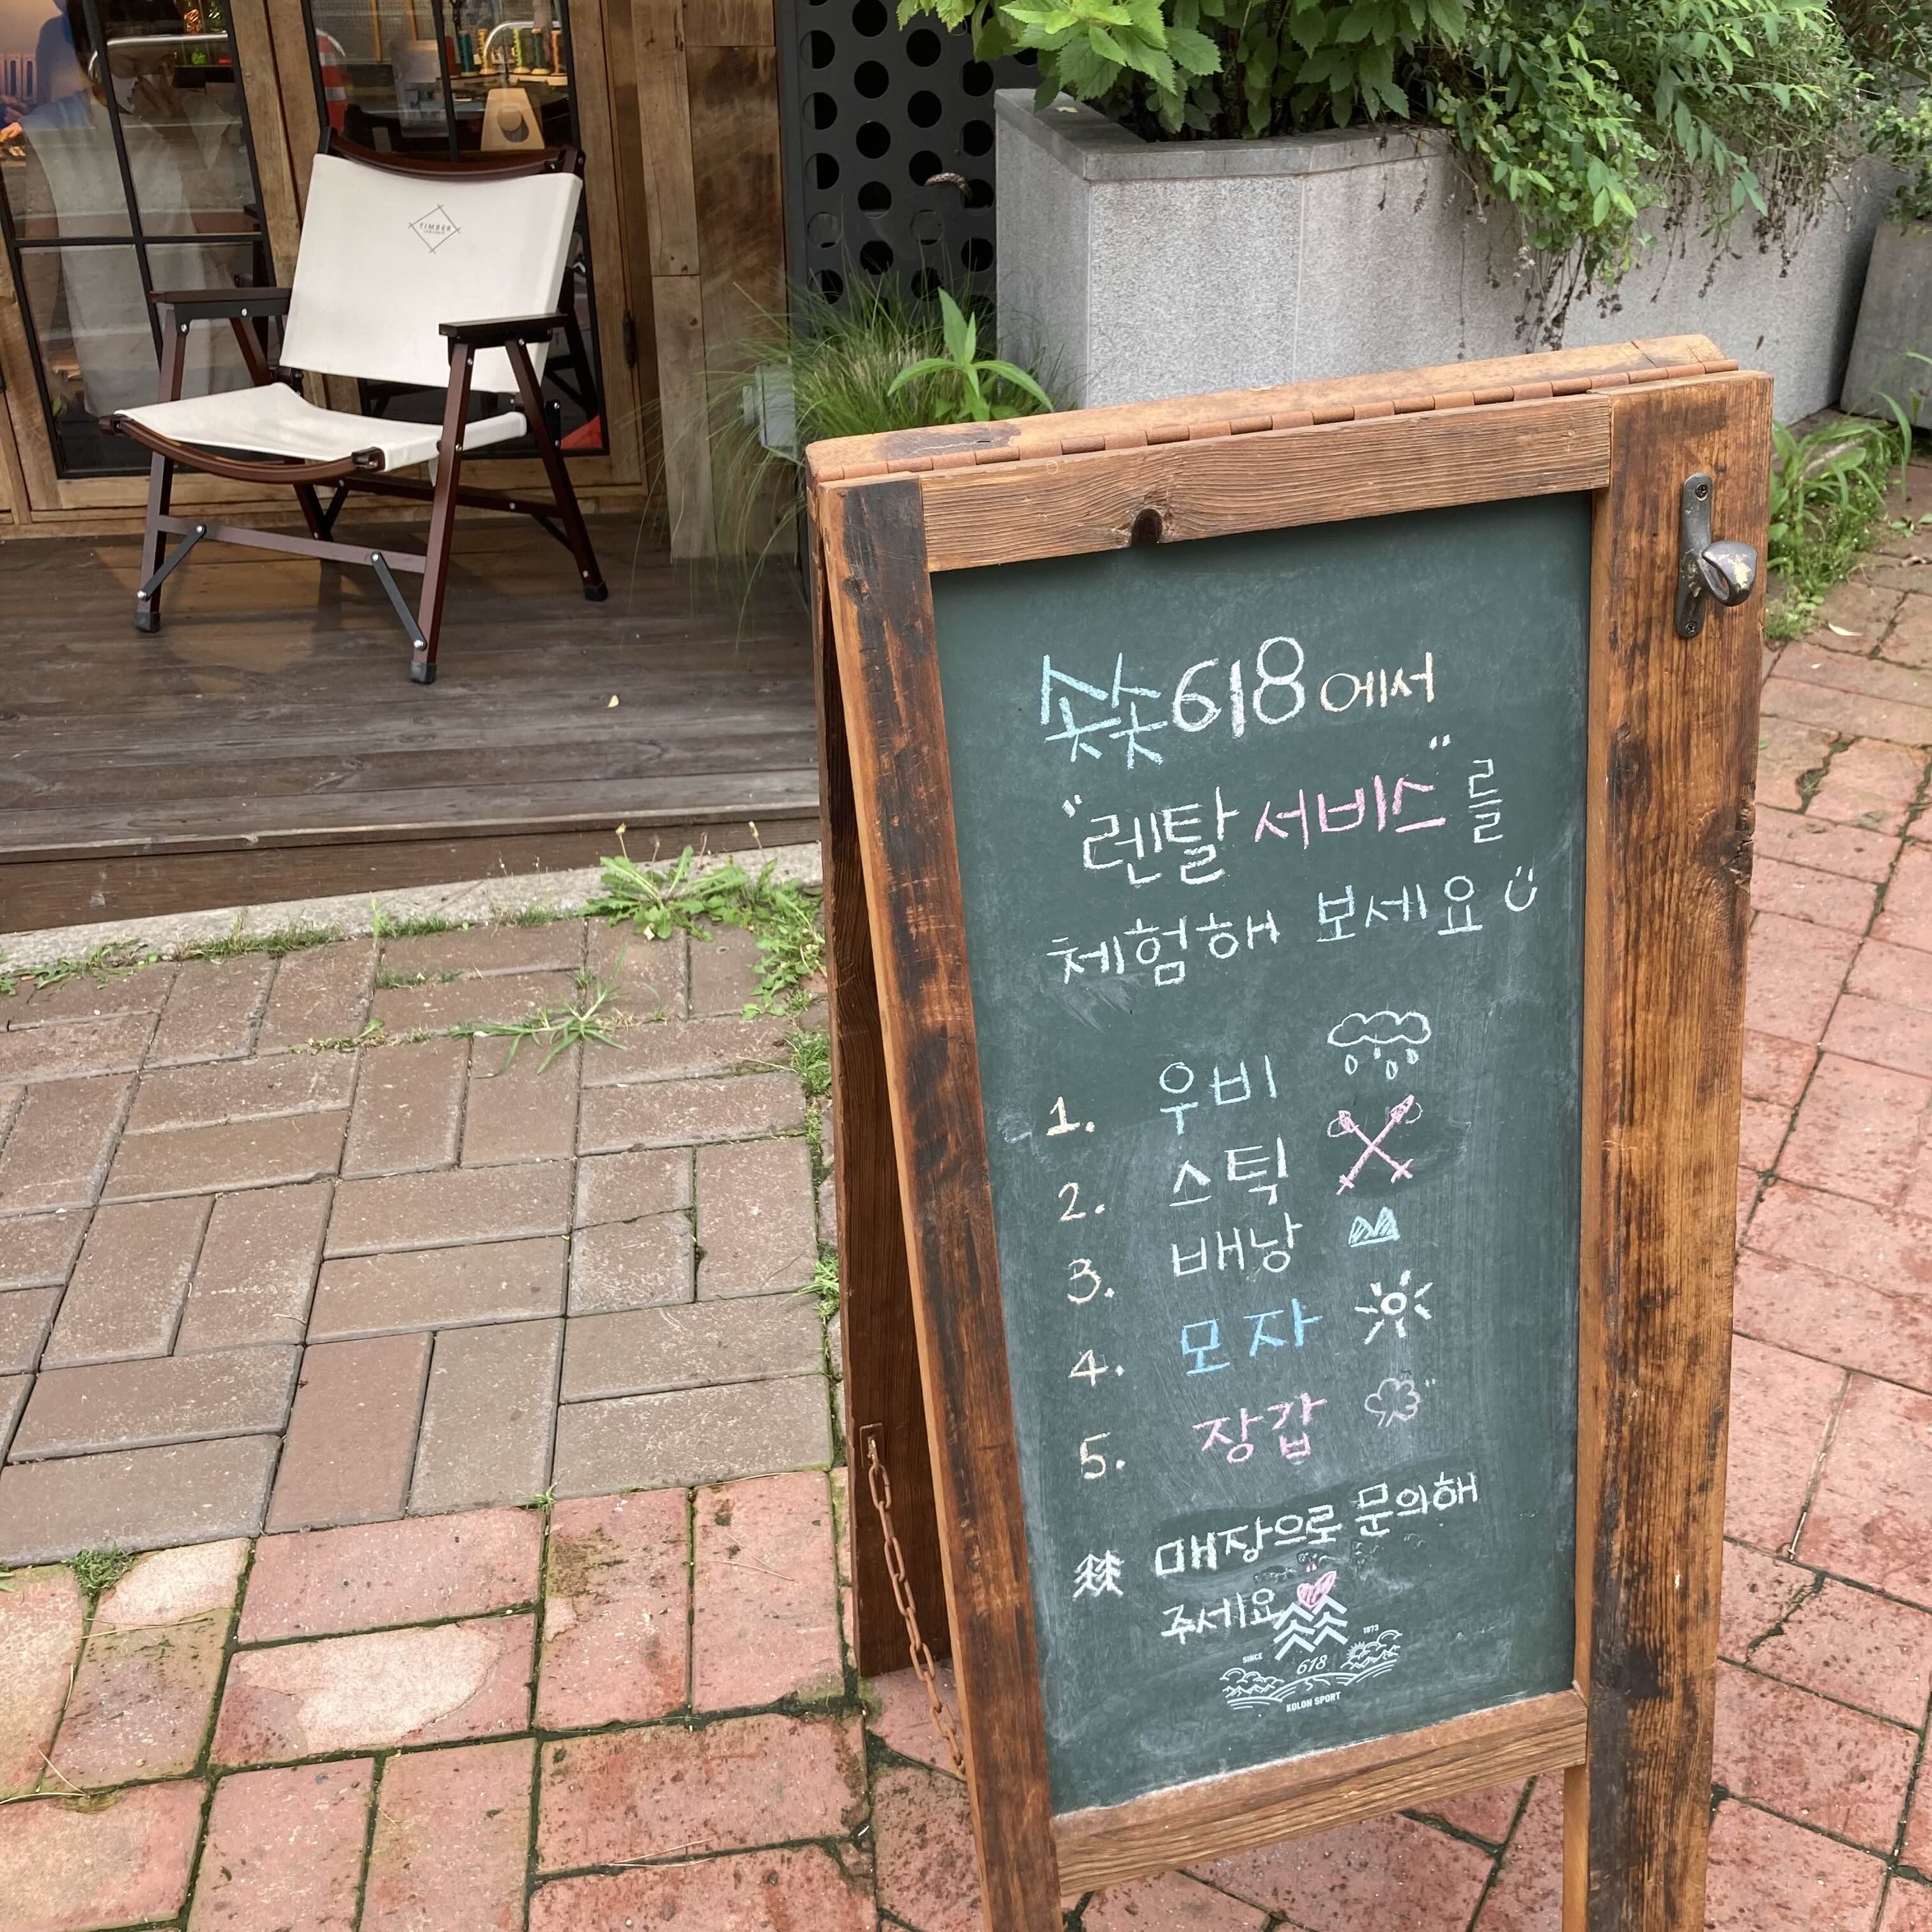 TIMBER
솟솟618에서
"렌탈 서비스"를
체험해 보세요
1. 우비
2. 스틱
3. 배낭
4. 모자
5. 장갑
매장으로 문의해
주세요
SINCE 1973
618
KOLON SPORT